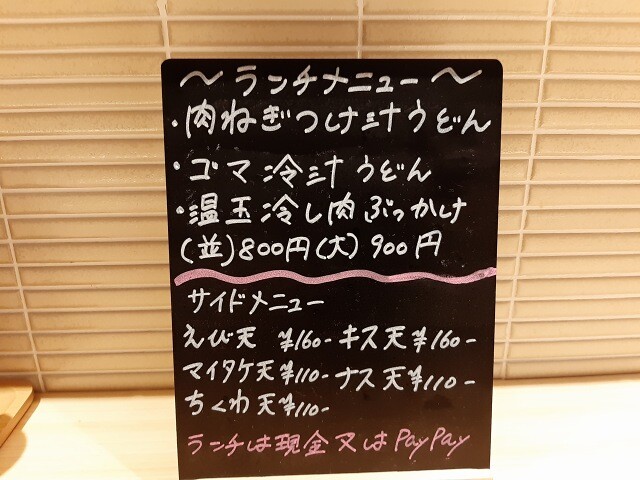 ～ランチメニュー～
・肉ねぎつけ汁うどん
・ゴマ冷汁うどん
・温玉冷し肉ぶっかけ
(並)800円(大)900円
サイドメニュー
えび天 ¥160- キス天¥160-
マイタケ天¥110- ナス天¥110-
ちくわ天¥110-
ランチは現金又はPayPay